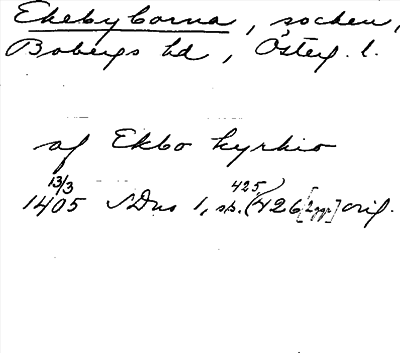 Ekebyborna, socken,
Bobergs hd, Österg. l.
af Ekbo kyrkio
13/3 425
1405 SDns 1, sp. (426 [2 ggr] orig.